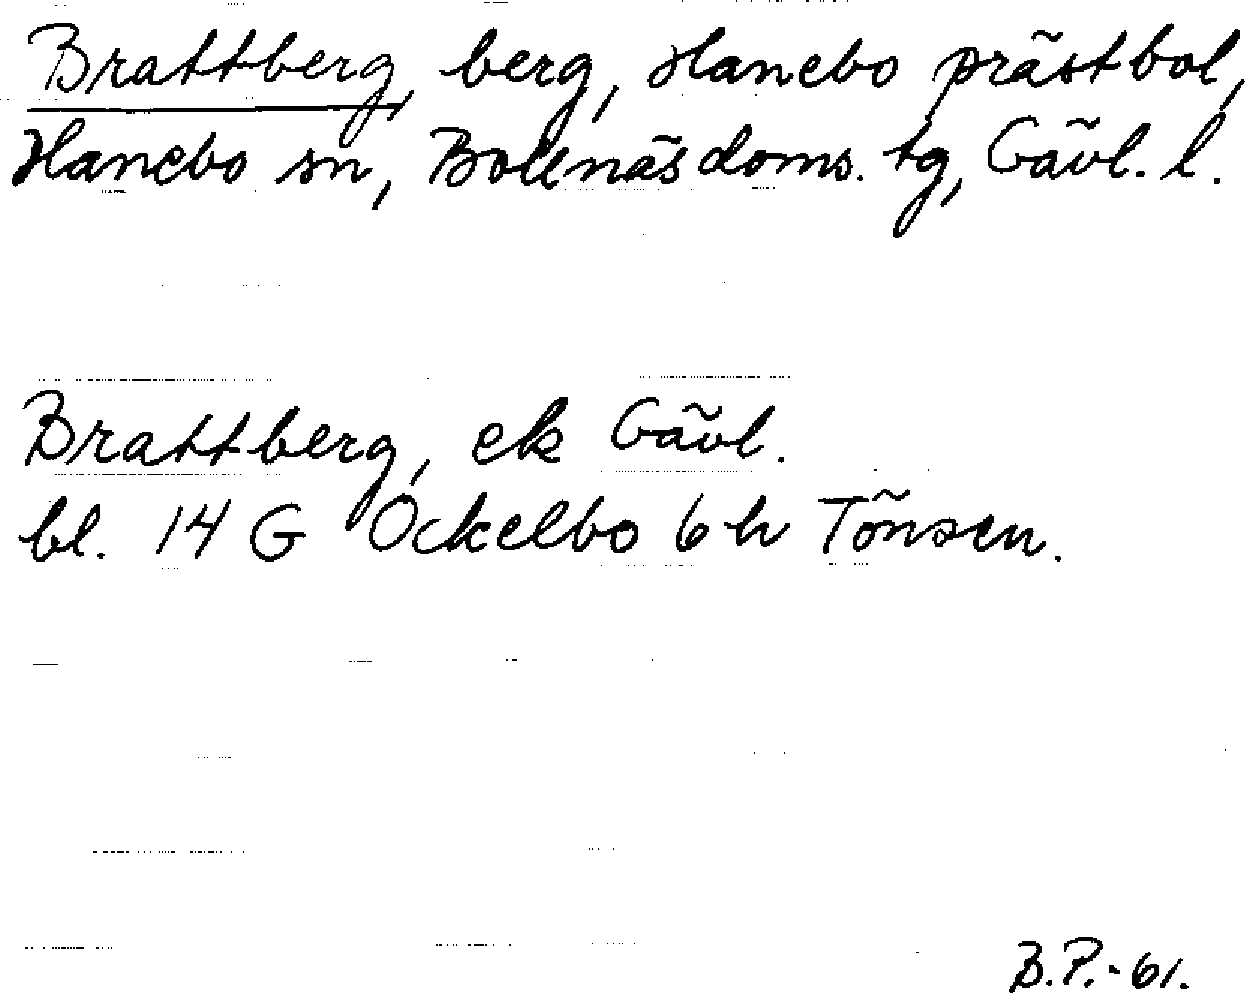 Brattberg, berg, Hanebo prästbol,
Hanebo sn, Bollnäs doms. tg, Gävl. l.
Brattberg, ek Gävl.
bl. 14 G Ockelbo 6 h Tönsen.
B.P.-61.